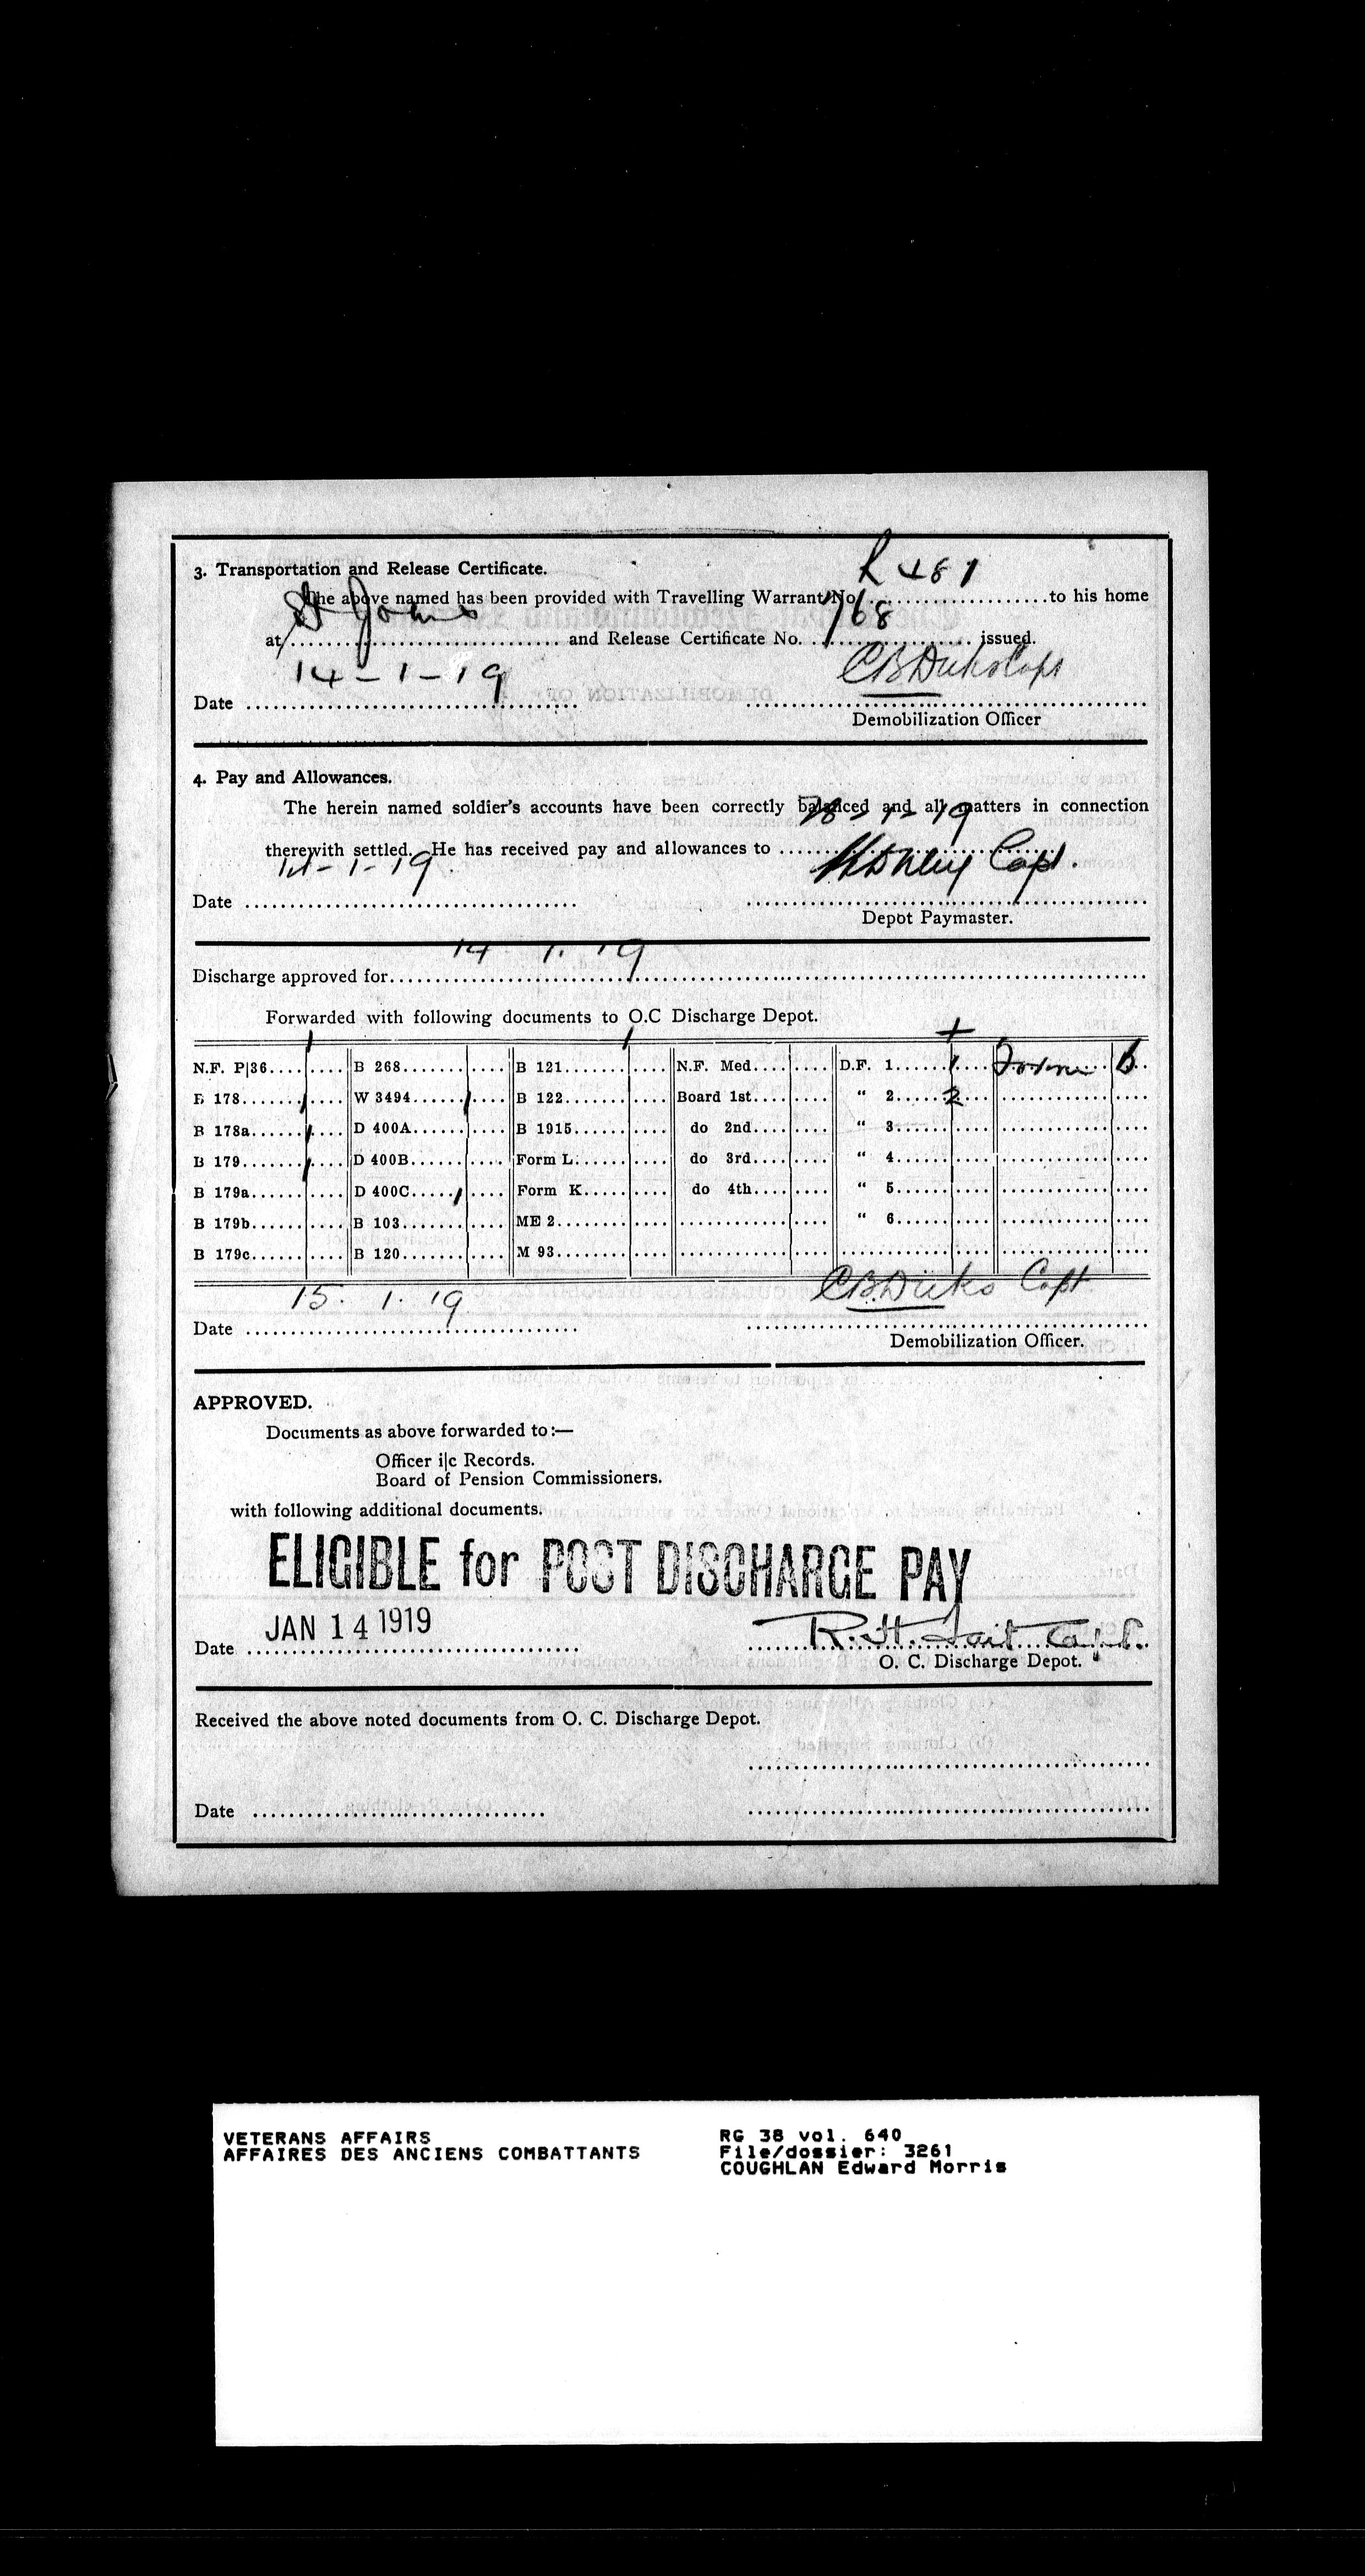 3. Transportation and Release Certificate.
R 481
The above named has been provided with Travelling Warrant No. ..................... to his home
St Johns 768
at ................................ and Release Certificate No. ........................ issued.
14-1-19
Date ................................ ................................
Demobilization Officer
4. Pay and Allowances.
The herein named soldier's accounts have been correctly balanced and all matters in connection
28-1-19
therewith settled. He has received pay and allowances to ................................
14-1-19 Capt.
Date ................................ ................................
Depot Paymaster.
14 1. 19
Discharge approved for................................
Forwarded with following documents to O.C Discharge Depot.
N.F. P|36.... / B 268........ B 121........ / N.F. Med........ D.F. 1...... 1 Form B
B 178...... / W 3494...... / B 122........ Board 1st........ " 2...... 2
B 178a...... / D 400A...... B 1915........ do 2nd........ " 3......
B 179...... / D 400B...... Form L........ do 3rd........ " 4......
B 179a...... D 400C...... / Form K........ do 4th........ " 5......
B 179b...... B 103........ ME 2........ " 6......
B 179c...... B 120........ M 93........
15. 1. 19 Capt
Date ................................ ................................
Demobilization Officer.
APPROVED.
Documents as above forwarded to:—
Officer i|c Records.
Board of Pension Commissioners.
with following additional documents.
ELIGIBLE for POST DISCHARGE PAY
JAN 14 1919 R. H. Tait Capt.
Date ................................ ................................
O. C. Discharge Depot.
Received the above noted documents from O. C. Discharge Depot.
................................
Date ................................ ................................
VETERANS AFFAIRS RG 38 vol. 640
AFFAIRES DES ANCIENS COMBATTANTS File/dossier: 3261
COUGHLAN Edward Morris